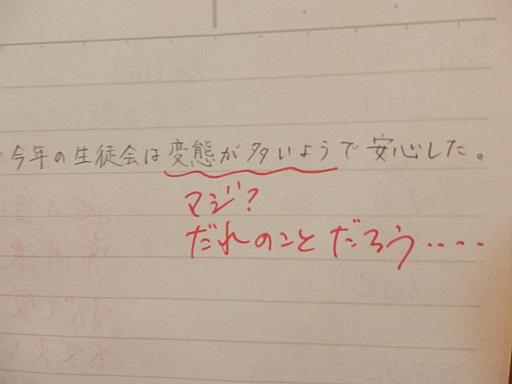 今年の生徒会は変態が多いようで安心した。
マジ?
だれのことだろう‥‥